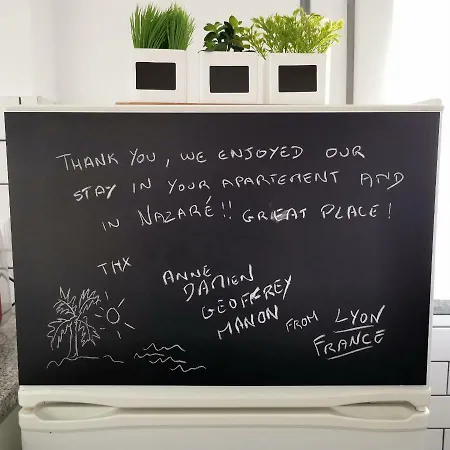 THANK YOU, WE ENJOYED OUR
STAY IN YOUR APARTEMENT AND
IN NAZARÉ!! GREAT PLACE!
THX
ANNE
DAMIEN
GEOFFREY
MANON FROM LYON
FRANCE